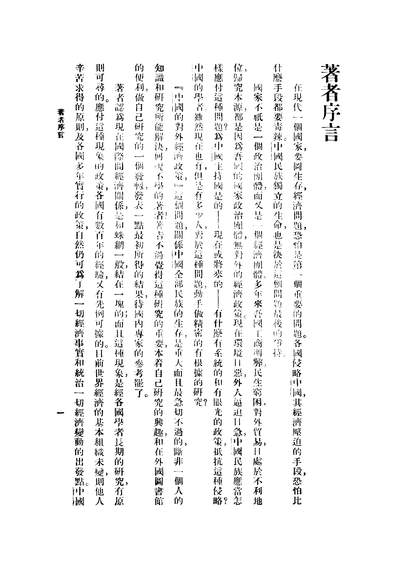 著者序言
在現代一個國家要圖生存經濟問題恐怕是第一個重要的問題各國侵略中國其經濟壓迫的手段恐怕比
什麼手段都要毒辣中國民族獨立的生命也是決於這個問題最後的
國家不祇是一個政治團體而又是一個經濟團體多年來吾國工商凋弊民生窮困對外貿易日處於不利地
位歸究本源都是因為吾國的國家政治團體無對外的經濟政策現在環境日惡外人逼迫日急中國民族應當怎
樣應付這種問題為中國主持國是的——現在或將來的——有什麼有系統的和有眼光的政策抵抗這種侵略?
中國的學者雖然現在也有但是有多少人對於這種問題動手做精密的有根據的研究?
『中國的對外經濟政策』這個問題關係中國全部民族的生存是重大而且最急切不過的斷非一個人的
知識和研究所能解決何況不學的著者著者不過覺得這種研究的重要本着自己研究的興趣和在外國圖書館
的便利做自己研究的一個發軔發表一點最初所得的結果待國內專家的參考罷了。
著者認為現在國際間經濟關係是和蛛網一般結在一塊的而且這種現象是經各國學者長期的研究有原
則可尋的應付這種現象的政策各國有數百年的經驗又有先例可據的目前世界經濟的基本組織未變則他人
辛苦求得的原則及各國多年實行的政策自然仍可為了解一切經濟事實和統治一切經濟變動的出發點中國
著者序言
一